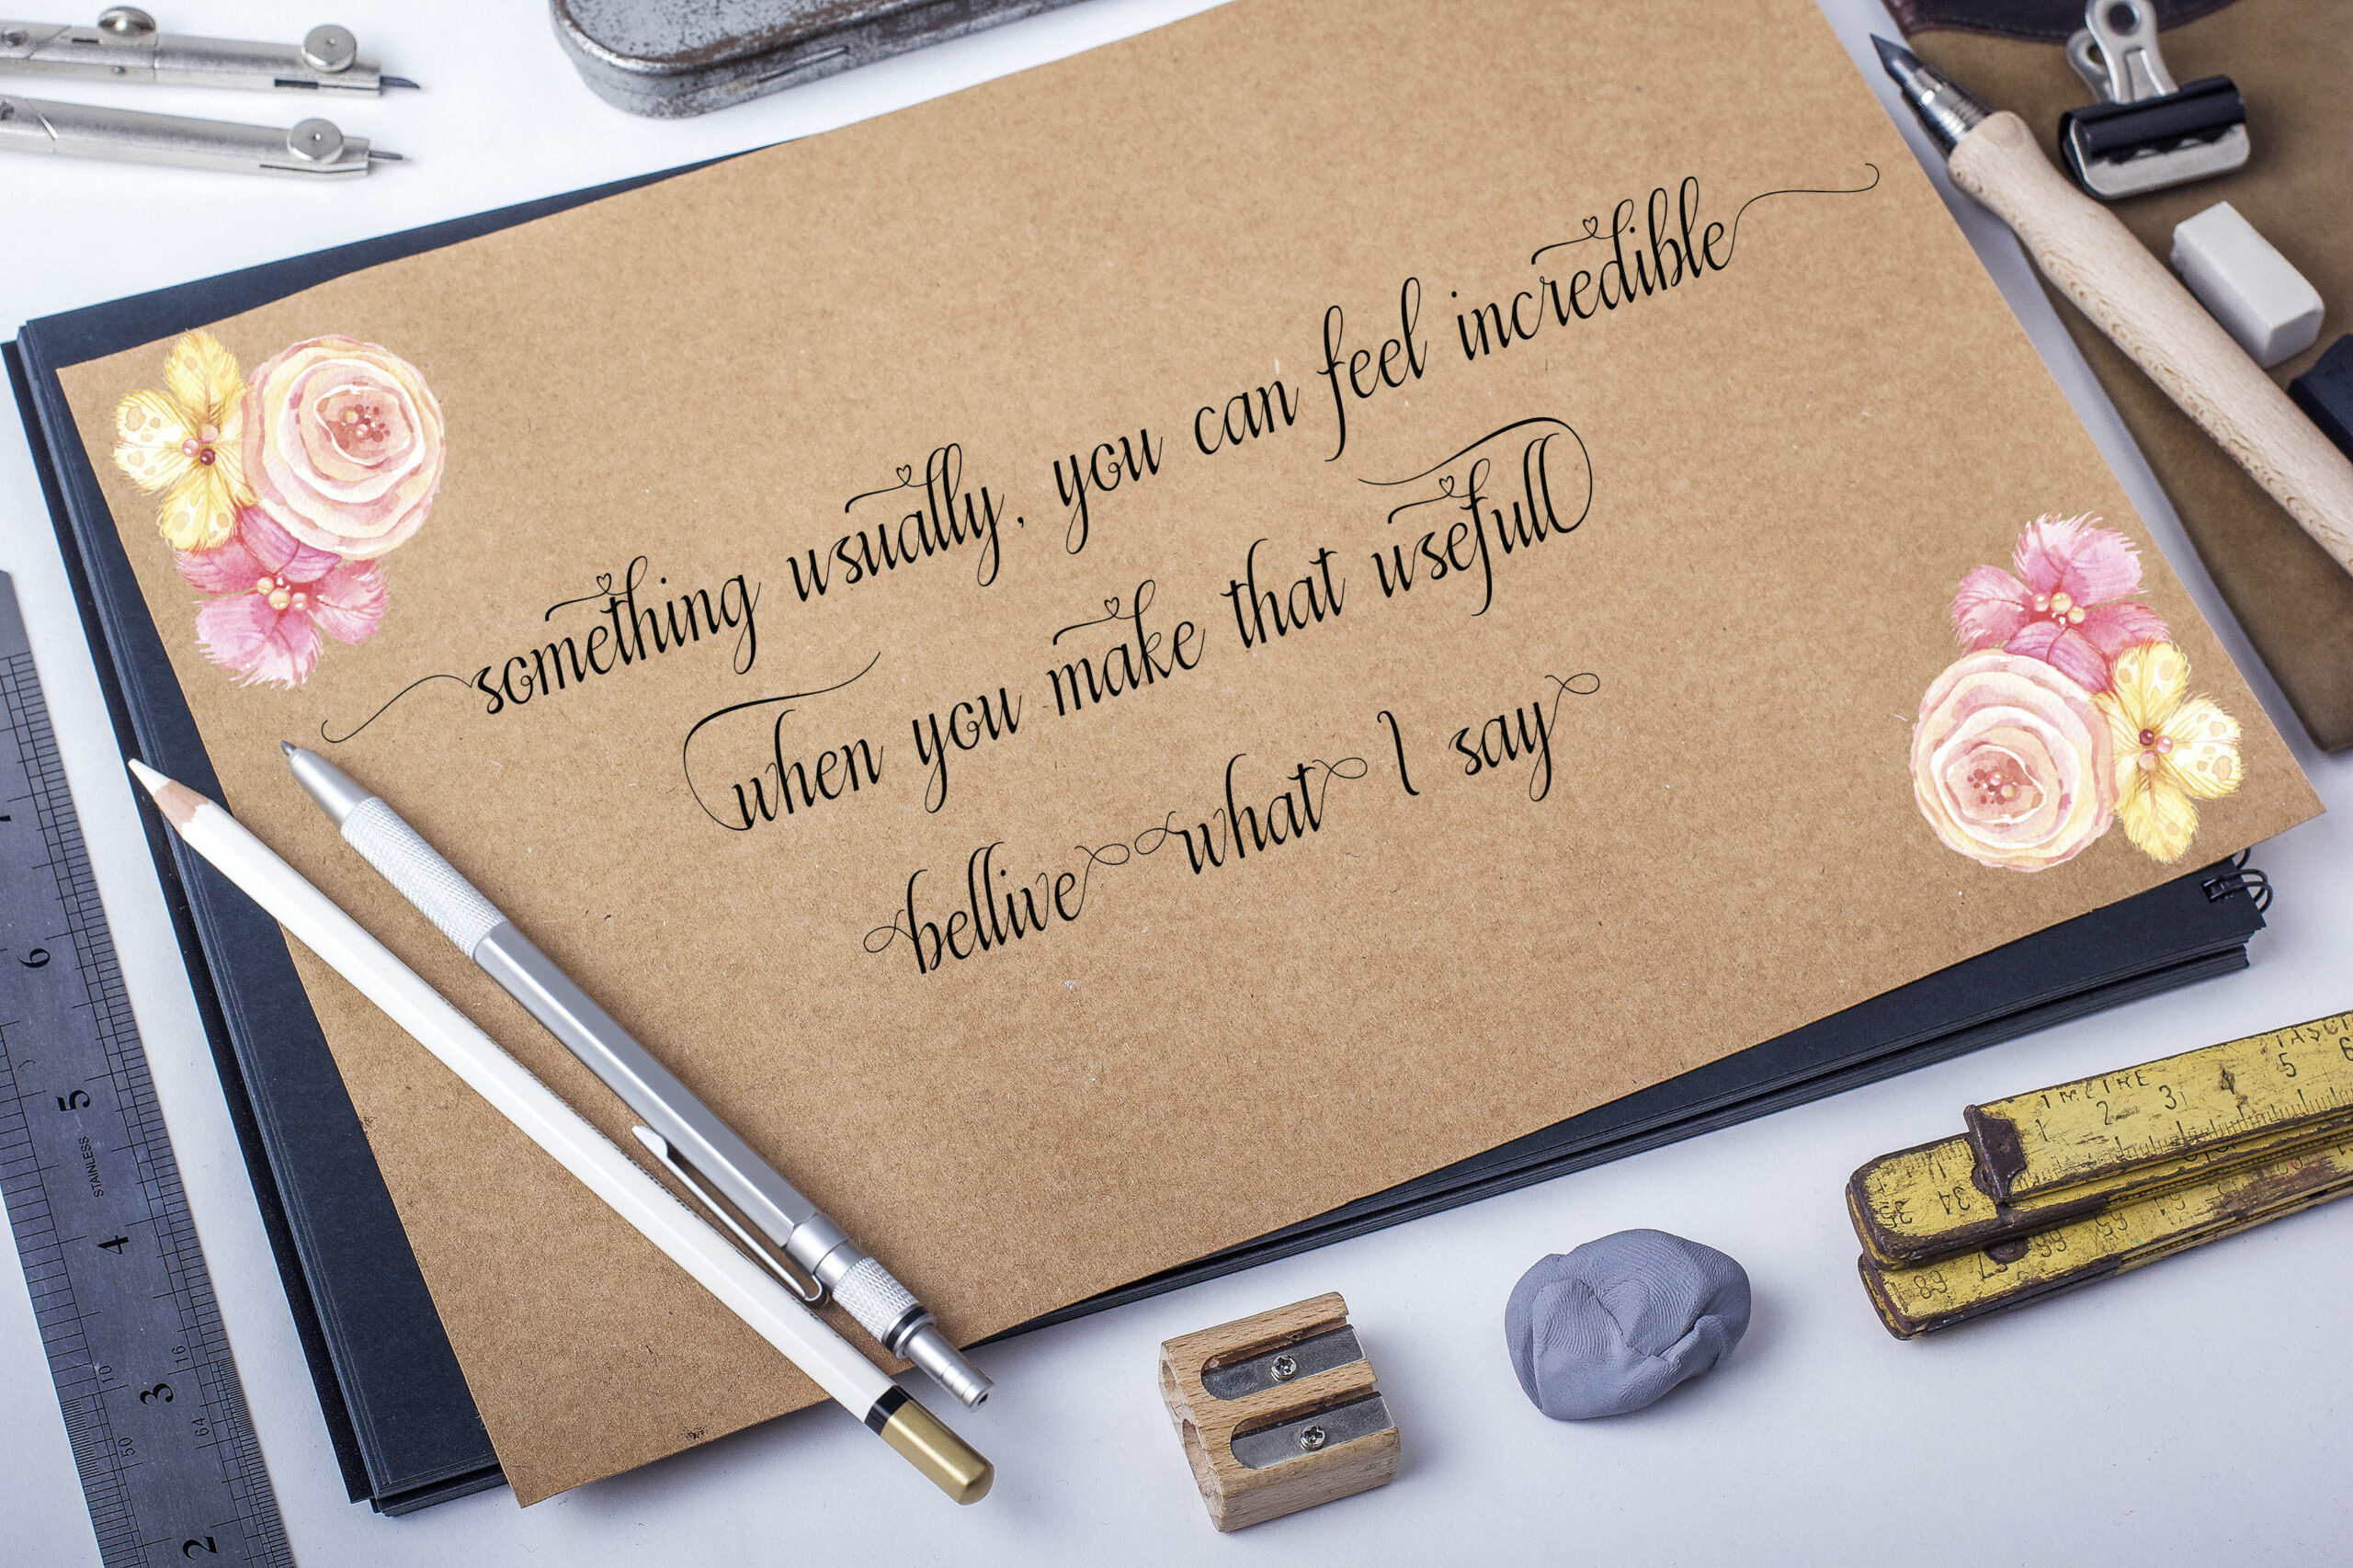 something usually, you can feel incredible
when you make that usefull
bellive what I say
6
5
STAINLESS
4
3
2
10
16
50
64
1 METRE
1 2 3 4 5 6
35 34
68 67 66 65 64